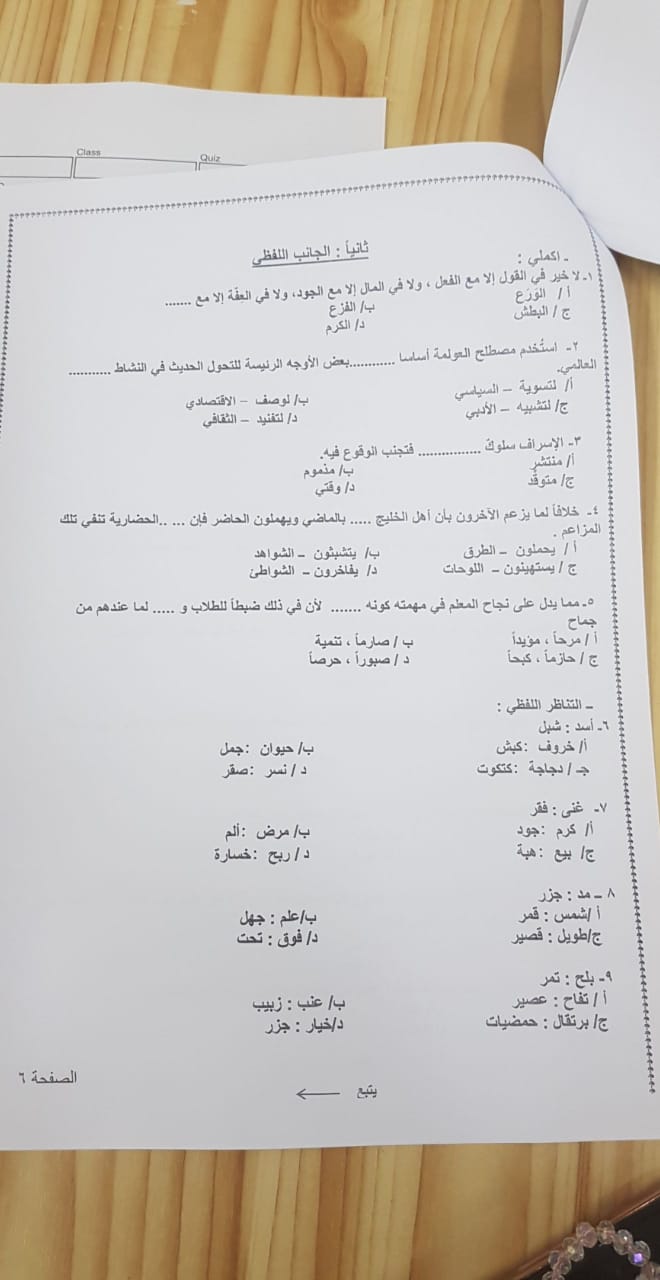 Class
Quiz
ثانياً : الجانب اللفظي
ـ اكملي :
١ـ لا خير في القول إلا مع الفعل ، ولا في المال إلا مع الجود، ولا في العِفّة إلا مع .......
أ / الوَرَع ب/ الفزع
ج / البطش د/ الكرم
٢- استُخدم مصطلح العولمة أساسا ............بعض الأوجه الرئيسة للتحول الحديث في النشاط ...........
العالمي.
أ/ لتسوية – السياسي ب/ لوصف – الاقتصادي
ج/ لتشبيه – الأدبي د/ لتفنيد – الثقافي
٣- الإسراف سلوك ................ فتجنب الوقوع فيه.
أ/ منتشر ب/ مذموم
ج/ متوقّد د/ وقتي
٤- خلافاً لما يزعم الآخرون بأن أهل الخليج ..... بالماضي ويهملون الحاضر فإن ... ..الحضارية تنفي تلك
المزاعم .
أ / يحملون – الطرق ب/ يتشبثون – الشواهد
ج / يستهينون – اللوحات د/ يفاخرون – الشواطئ
٥- مما يدل على نجاح المعلم في مهمته كونه ....... لأن في ذلك ضبطاً للطلاب و ..... لما عندهم من
جماح
أ / مرحاً ، مؤيداً ب / صارماً ، تنمية
ج / حازماً ، كبحاً د / صبوراً ، حرصاً
ـ التناظر اللفظي :
٦- أسد : شبل
أ/ خروف :كبش ب/ حيوان :جمل
جـ / دجاجة :كتكوت د / نسر :صقر
٧- غنى : فقر
أ/ كرم :جود ب/ مرض :ألم
ج/ بيع :هبة د / ربح :خسارة
٨ – مد : جزر
أ /شمس : قمر ب/علم : جهل
ج/طويل : قصير د/ فوق : تحت
٩- بلح : تمر
أ / تفاح : عصير ب/ عنب : زبيب
ج/ برتقال : حمضيات د/خيار : جزر
يتبع
الصفحة ٦